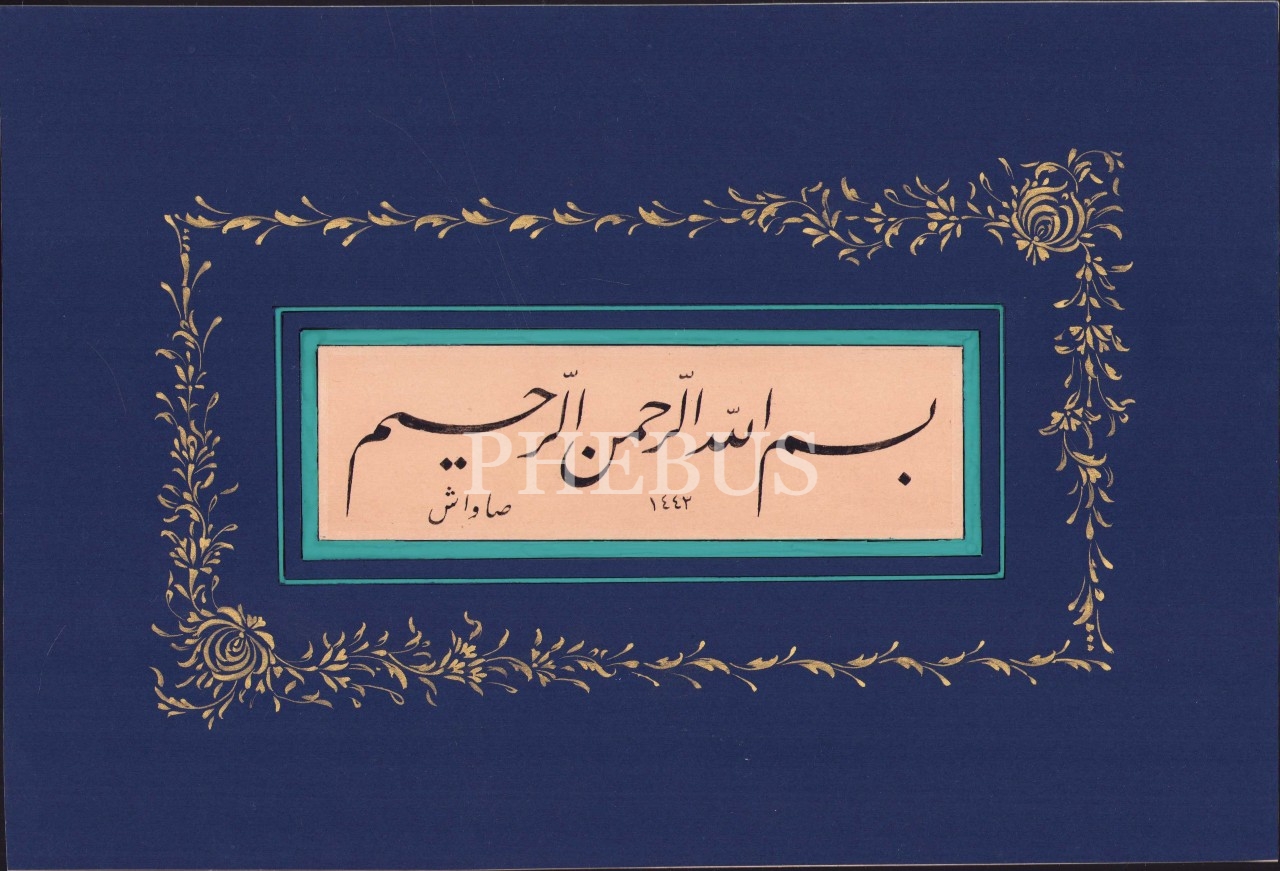 بسم الله الرحمن الرحيم
PHEBUS
١٤٤٢
صاواش